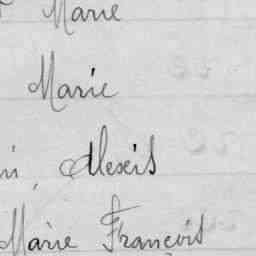 Marie
Marie
Alexis
Marie François